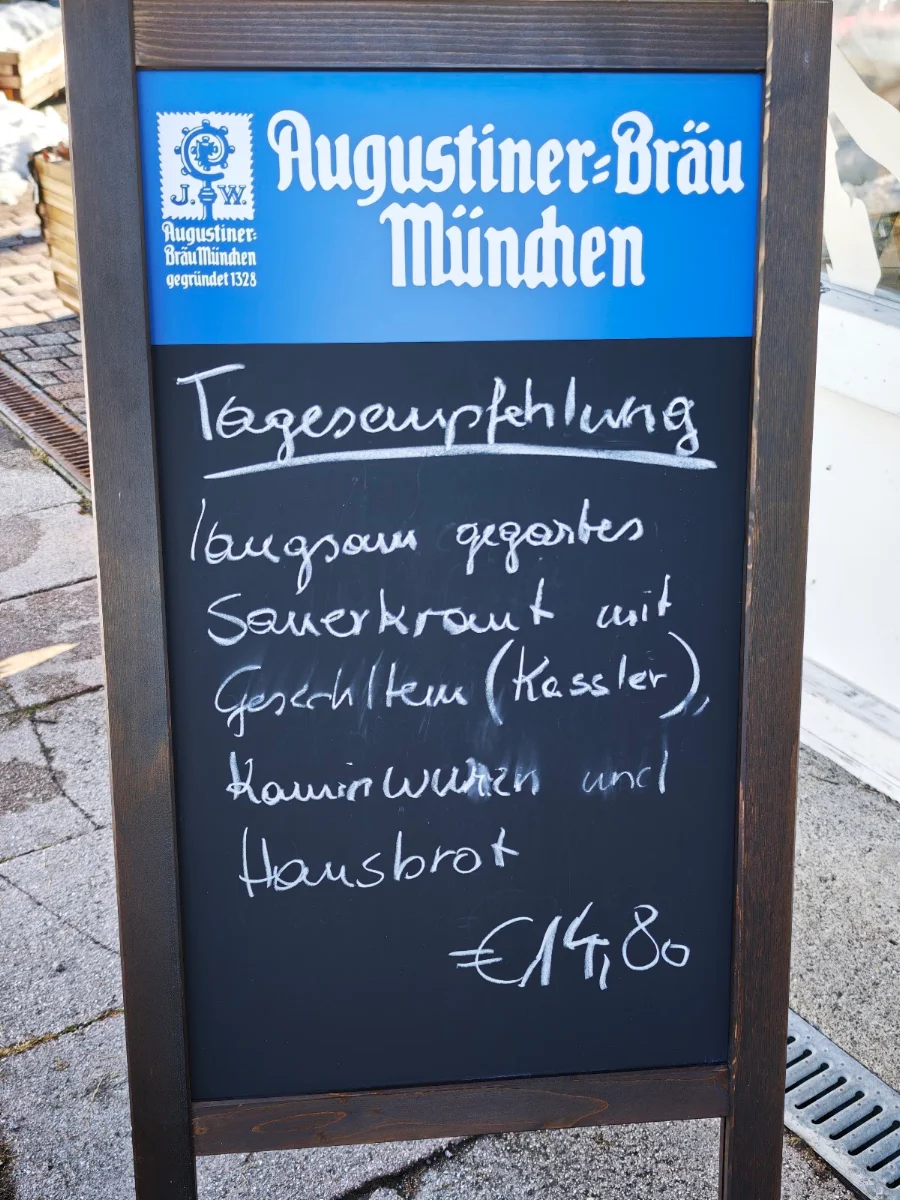 Augustiner=Bräu
München
J. W.
Augustiner=
Bräu München
gegründet 1328
Tagesempfehlung
langsam gegartes
Sauerkraut mit
Geselchtem (Kassler),
Kaminwurzn und
Hausbrot
€14,80